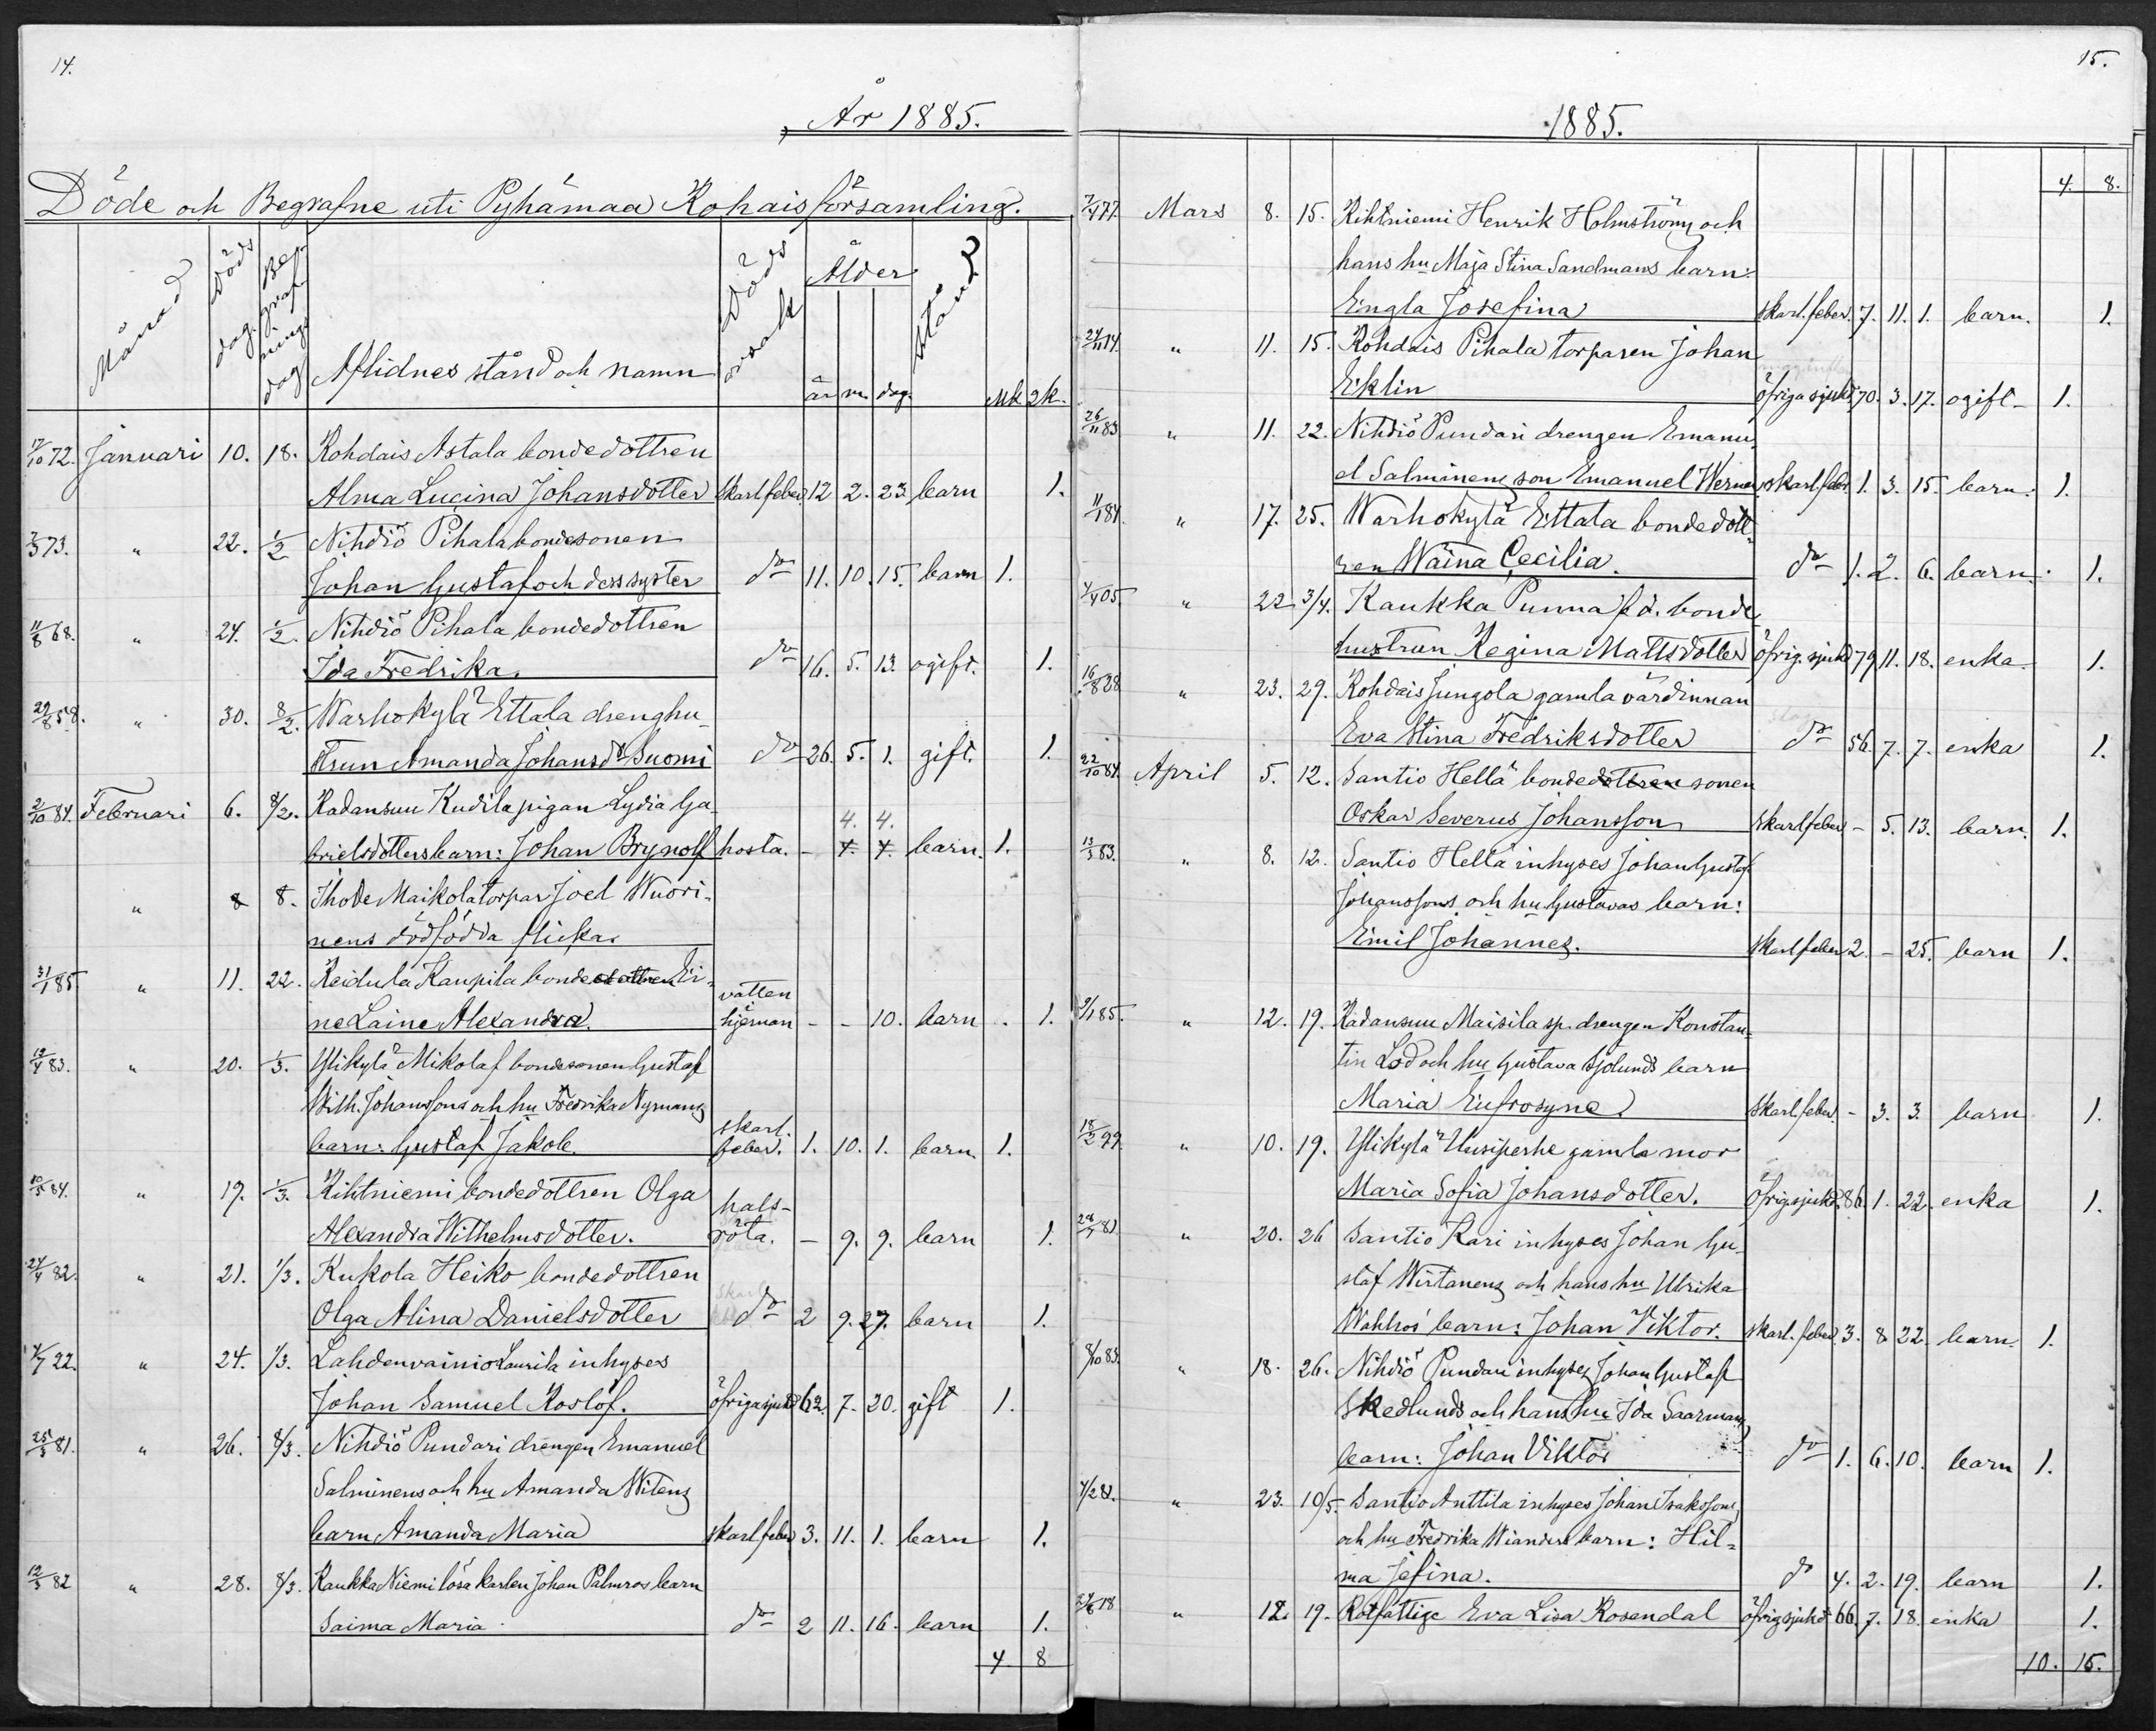 14.
År 1885.
Döde och Begrafne uti Pyhämaa Rohdais församling.
Månad
Döds dag.
Begrafnings dag
Aflidnes stånd och namn
Döds orsak
Ålder
år m. dag.
Stånd
Mk. Qk.
17/10 72. Januari 10. 18. Rohdais Astala bondedottren
Alma Lucina Johansdotter skarl.feber. 12 2. 23. barn 1.
7/3 73. " 22. 1/2 Nihdiö Pihala bondesonen
Johan Gustaf och dess syster do 11. 10. 15. barn 1.
11/8 68. " 24. 1/2. Nihdiö Pihala bondedottren
Ida Fredrika. do 16. 5. 13. ogift. 1.
29/8 58. " 30. 8/2. Warhokylä Ettala drenghu-
strun Amanda Johansdr Suomi do 26. 5. 1. gift. 1.
2/10 84. Februari 6. 8/2. Radansuu Kudila pigan Lydia Ga-
4. 4.
brielsdotters barn: Johan Brynolf hosta. - 4. 4. barn. 1.
" 8 8. Ihode Maikola torpar Joel Wuori-
nens dödfödda flicka.
31/1 85 " 11. 22. Reidula Kaupila bondedottren Ei-
ne Laine Alexandra. vatten hjernan - - 10. barn . 1.
19/4 83. " 20. 1/3. Ylikylä Mikolaf bondesonen Gustaf
Wilh. Johanssons och hu Fredrika Nymans
barn: Gustaf Jakob. skarl. feber. 1. 10. 1. barn. 1.
10/5 84. " 19. 1/3. Kihtniemi bondedottren Olga
Alexandra Wilhelmsdotter. hals-röta. - 9. 9. barn 1.
24/4 82. " 21. 1/3. Kukola Heiko bondedottren
Olga Alina Danielsdotter do 2 9. 27. barn 1.
4/7 22. " 24. 1/3. Lahdenvainio Laurila inhyses
Johan Samuel Roslöf. öfriga sjukd 62. 7. 20. gift 1.
25/3 81. " 26. 8/3. Nihdiö Pundari drengen Emanuel
Salminens och hu Amanda Witens
barn Amanda Maria skarl.feber 3. 11. 1. barn 1.
12/3 82 " 28. 8/3. Kaukka Niemi lösa karlen Johan Palmros barn
Saima Maria do 2 11. 16. barn 1.
4 8
15.
1885.
4. 8.
7/4 77. Mars 8. 15. Kihtniemi Henrik Holmströms och
hans hu Maja Stina Sandmans barn:
Engla Josefina skarl.feber. 7. 11. 1. barn. 1.
24/11 14. " 11. 15. Rohdais Pihala torparen Johan
Eklin öfriga sjukd 70. 3. 17. ogift 1.
26/11 83 " 11. 22. Nihdiö Pundari drengen Emanu-
el Salminens son Emanuel Werner skarl.feber 1. 3. 15. barn. 1.
11/1 84. " 17. 25. Warhokylä Ettala bondedott-
ren Waina Cecilia. do 1. 2. 6. barn. 1.
4/4 05. " 22. 3/4. Kaukka Punna f.d. bonde
hustrun Regina Mattsdotter öfrig. sjukd 79 11. 18. enka. 1.
16/8 28 " 23. 29. Rohdais Jungola gamla värdinnan
Eva Stina Fredriksdotter do 56. 7. 7. enka 1.
22/10 84. April 5. 12. Santio Hellä bondedottren sonen
Oskar Severus Johansson skarl.feber - 5. 13. barn. 1.
13/3 83. " 8. 12. Santio Hellä inhyses Johan Gustaf
Johanssons och hu Gustavas barn:
Emil Johannes. skarl.feber 2. - 25. barn 1.
9/1 85. " 12. 19. Radansuu Maisila sp. drengen Konstan-
tin Lod och hu Gustava Sjölunds barn
Maria Eufrosyne skarl.feber. - 3. 3. barn 1.
18/2 99. " 10. 19. Ylikylä Uusiperhe gamla mor
Maria Sofia Johansdotter. öfrig sjukd. 86. 1. 22. enka 1.
28/7 81 " 20. 26 Santio Kari inhyses Johan Gu-
staf Wirtanens och hans hu Ulrika
Wahlros' barn: Johan Viktor. skarl. feber. 3. 8 22. barn. 1.
8/10 83. " 18. 26. Nihdiö Pundari inhyses Johan Gustaf
Skedlunds och hans hu Ida Saarmans
barn: Johan Viktor do 1. 6. 10. barn 1.
4/2 81. " 23. 10/5. Santio Anttila inhyses Johan Isakssons
och hu Fredrika Wianders barn: Hil-
ma Jefina. do 4. 2. 19. barn 1.
18 " 12. 19. Rotfattige Eva Lisa Rosendal öfrig sjukd 66. 7. 18. enka 1.
10. 15.